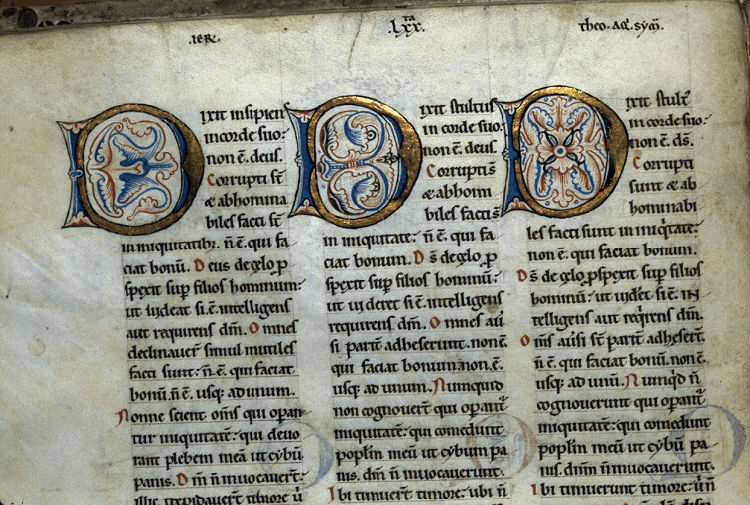 .IER.
.LXX.ta
theo. Aq̄. sym̄.
Dixit insipiens
in corde suo:
non ē. deus.
Corrupti st̄
& abhomina
biles facti st̄
in iniquitatibȝ. n̄ ē. qui fa
ciat bonū. Deus de celo p
spexit sup filios hominum:
ut videat si. ē. intelligens
aut requirens dm̄. Omnes
declinauer̄ simul inutiles
facti sunt: n̄ ē. qui faciat
bonū. n̄ ē. usq; ad unum.
Nonne scient om̄s qui operan
tur iniquitatē: qui deuo
rant plebem meā ut cybū
panis. Dm̄ n̄ inuocauer̄t:
illic trepidauer̄t timore ū
Dixit stultus
in corde suo:
non ē. deus.
Corrupti s̄
& abhomi
biles facti s̄
in iniquitate: n̄ ē. qui fa
ciat bonum. Ds̄ de celo p
spexit sup filios hominū:
ut videret si. ē. intelligens
aut requirens dm̄. Omnes
si pariter adheserunt. non. ē.
qui faciat bonum. non. ē.
usq; ad unum. Nunquid
non cognouer̄t qui operant̄
iniquitatē: qui comedunt
poplm̄ meū ut cybum pa
nis. dm̄ n̄ inuocauerunt.
Ibi timuer̄t timore: ubi n̄
Dixit stult'
in corde suo:
non ē. ds̄.
Corrupti
sunt & ab
hominabi
les facti sunt in iniq̄tate:
non ē. qui faciat bonum.
Ds̄ de celo pspexit sup filios
hominū: ut videt̄ si ē. in
telligens aut req̄rens dm̄.
Om̄s simul st̄ pariter adheser̄t.
n̄ ē. qui faciat bonū. non ē.
usq; ad unū. Nunq̄d n̄
cognouerunt qui operant̄
iniquitatē: qui comedunt
poplm̄ meū ut cybū pa
nis. dnm̄ n̄ inuocauerunt.
Ibi timuerunt timore: ubi n̄